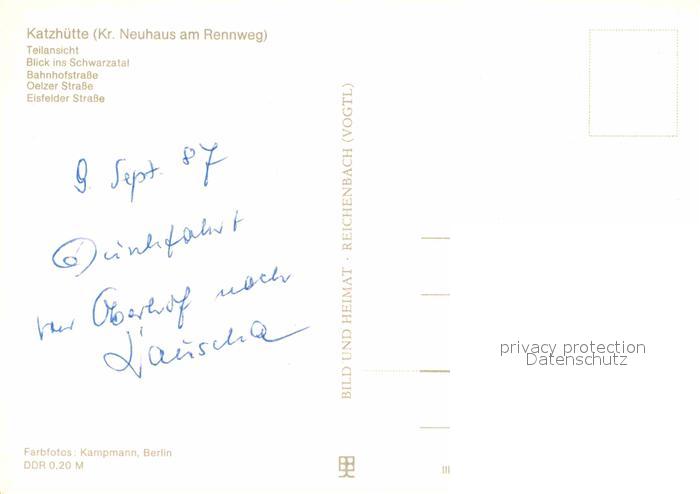 Katzhütte (Kr. Neuhaus am Rennweg)
Teilansicht
Blick ins Schwarzatal
Bahnhofstraße
Oelzer Straße
Eisfelder Straße
9. Sept. 87
Durchfahrt
von Oberhof nach
Lauscha
BILD UND HEIMAT · REICHENBACH (VOGTL)
privacy protection
Datenschutz
Farbfotos: Kampmann, Berlin
DDR 0,20 M
III